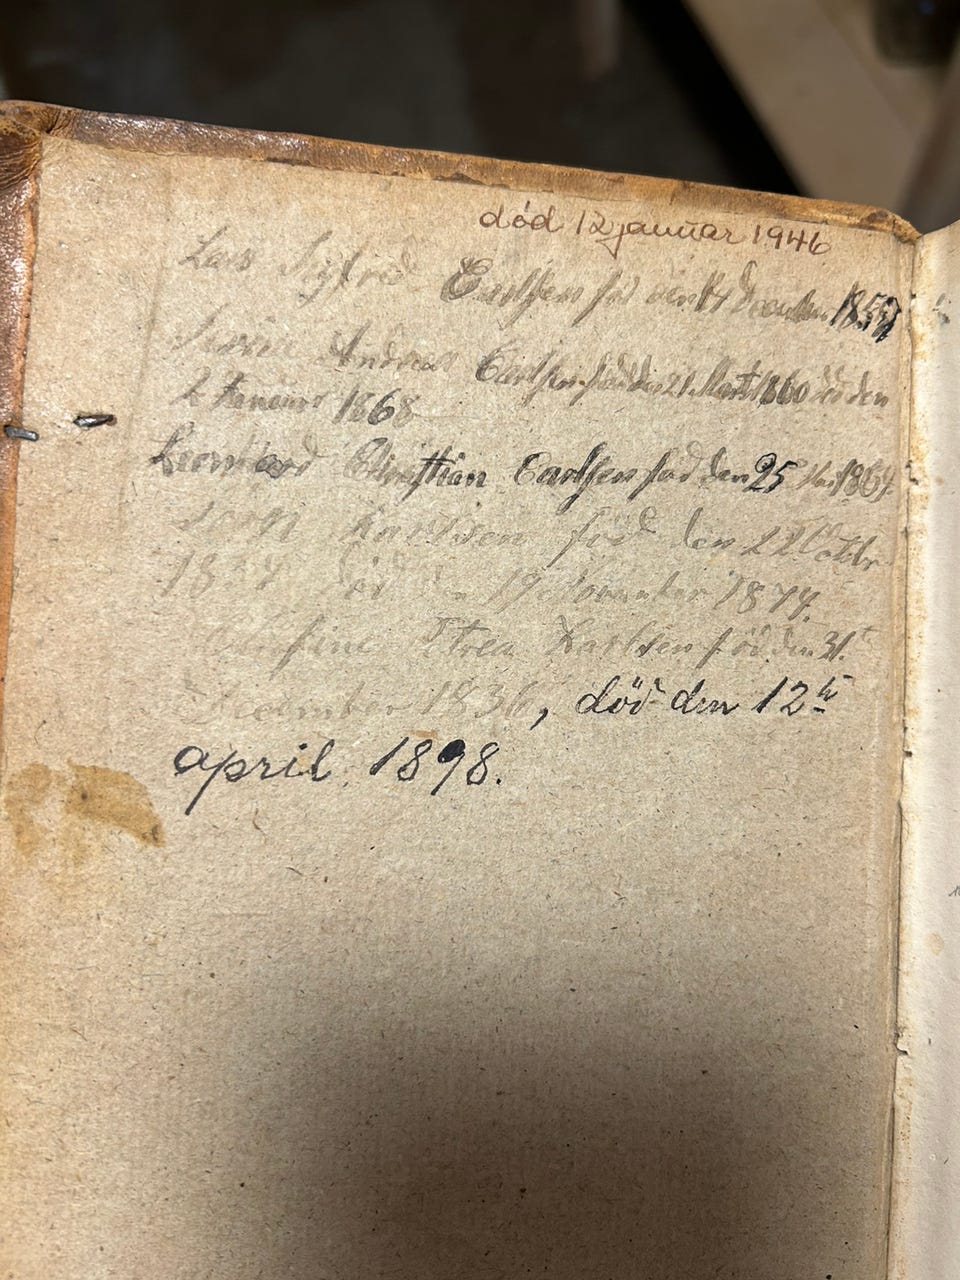 död 12 januar 1946
Lars Sigfrid Carlsen föd den 14 December
Andreas Carlsen föd den 21 Marts 1860 död den
2 Januar 1868
Leonhard Christian Carlsen föd den 25 Mai 1864
Karlsen föd den 22 Octbr
död den 19 November 1874.
Petrea Karlsen föd den 31t
December 1836, död den 12te
april 1898.